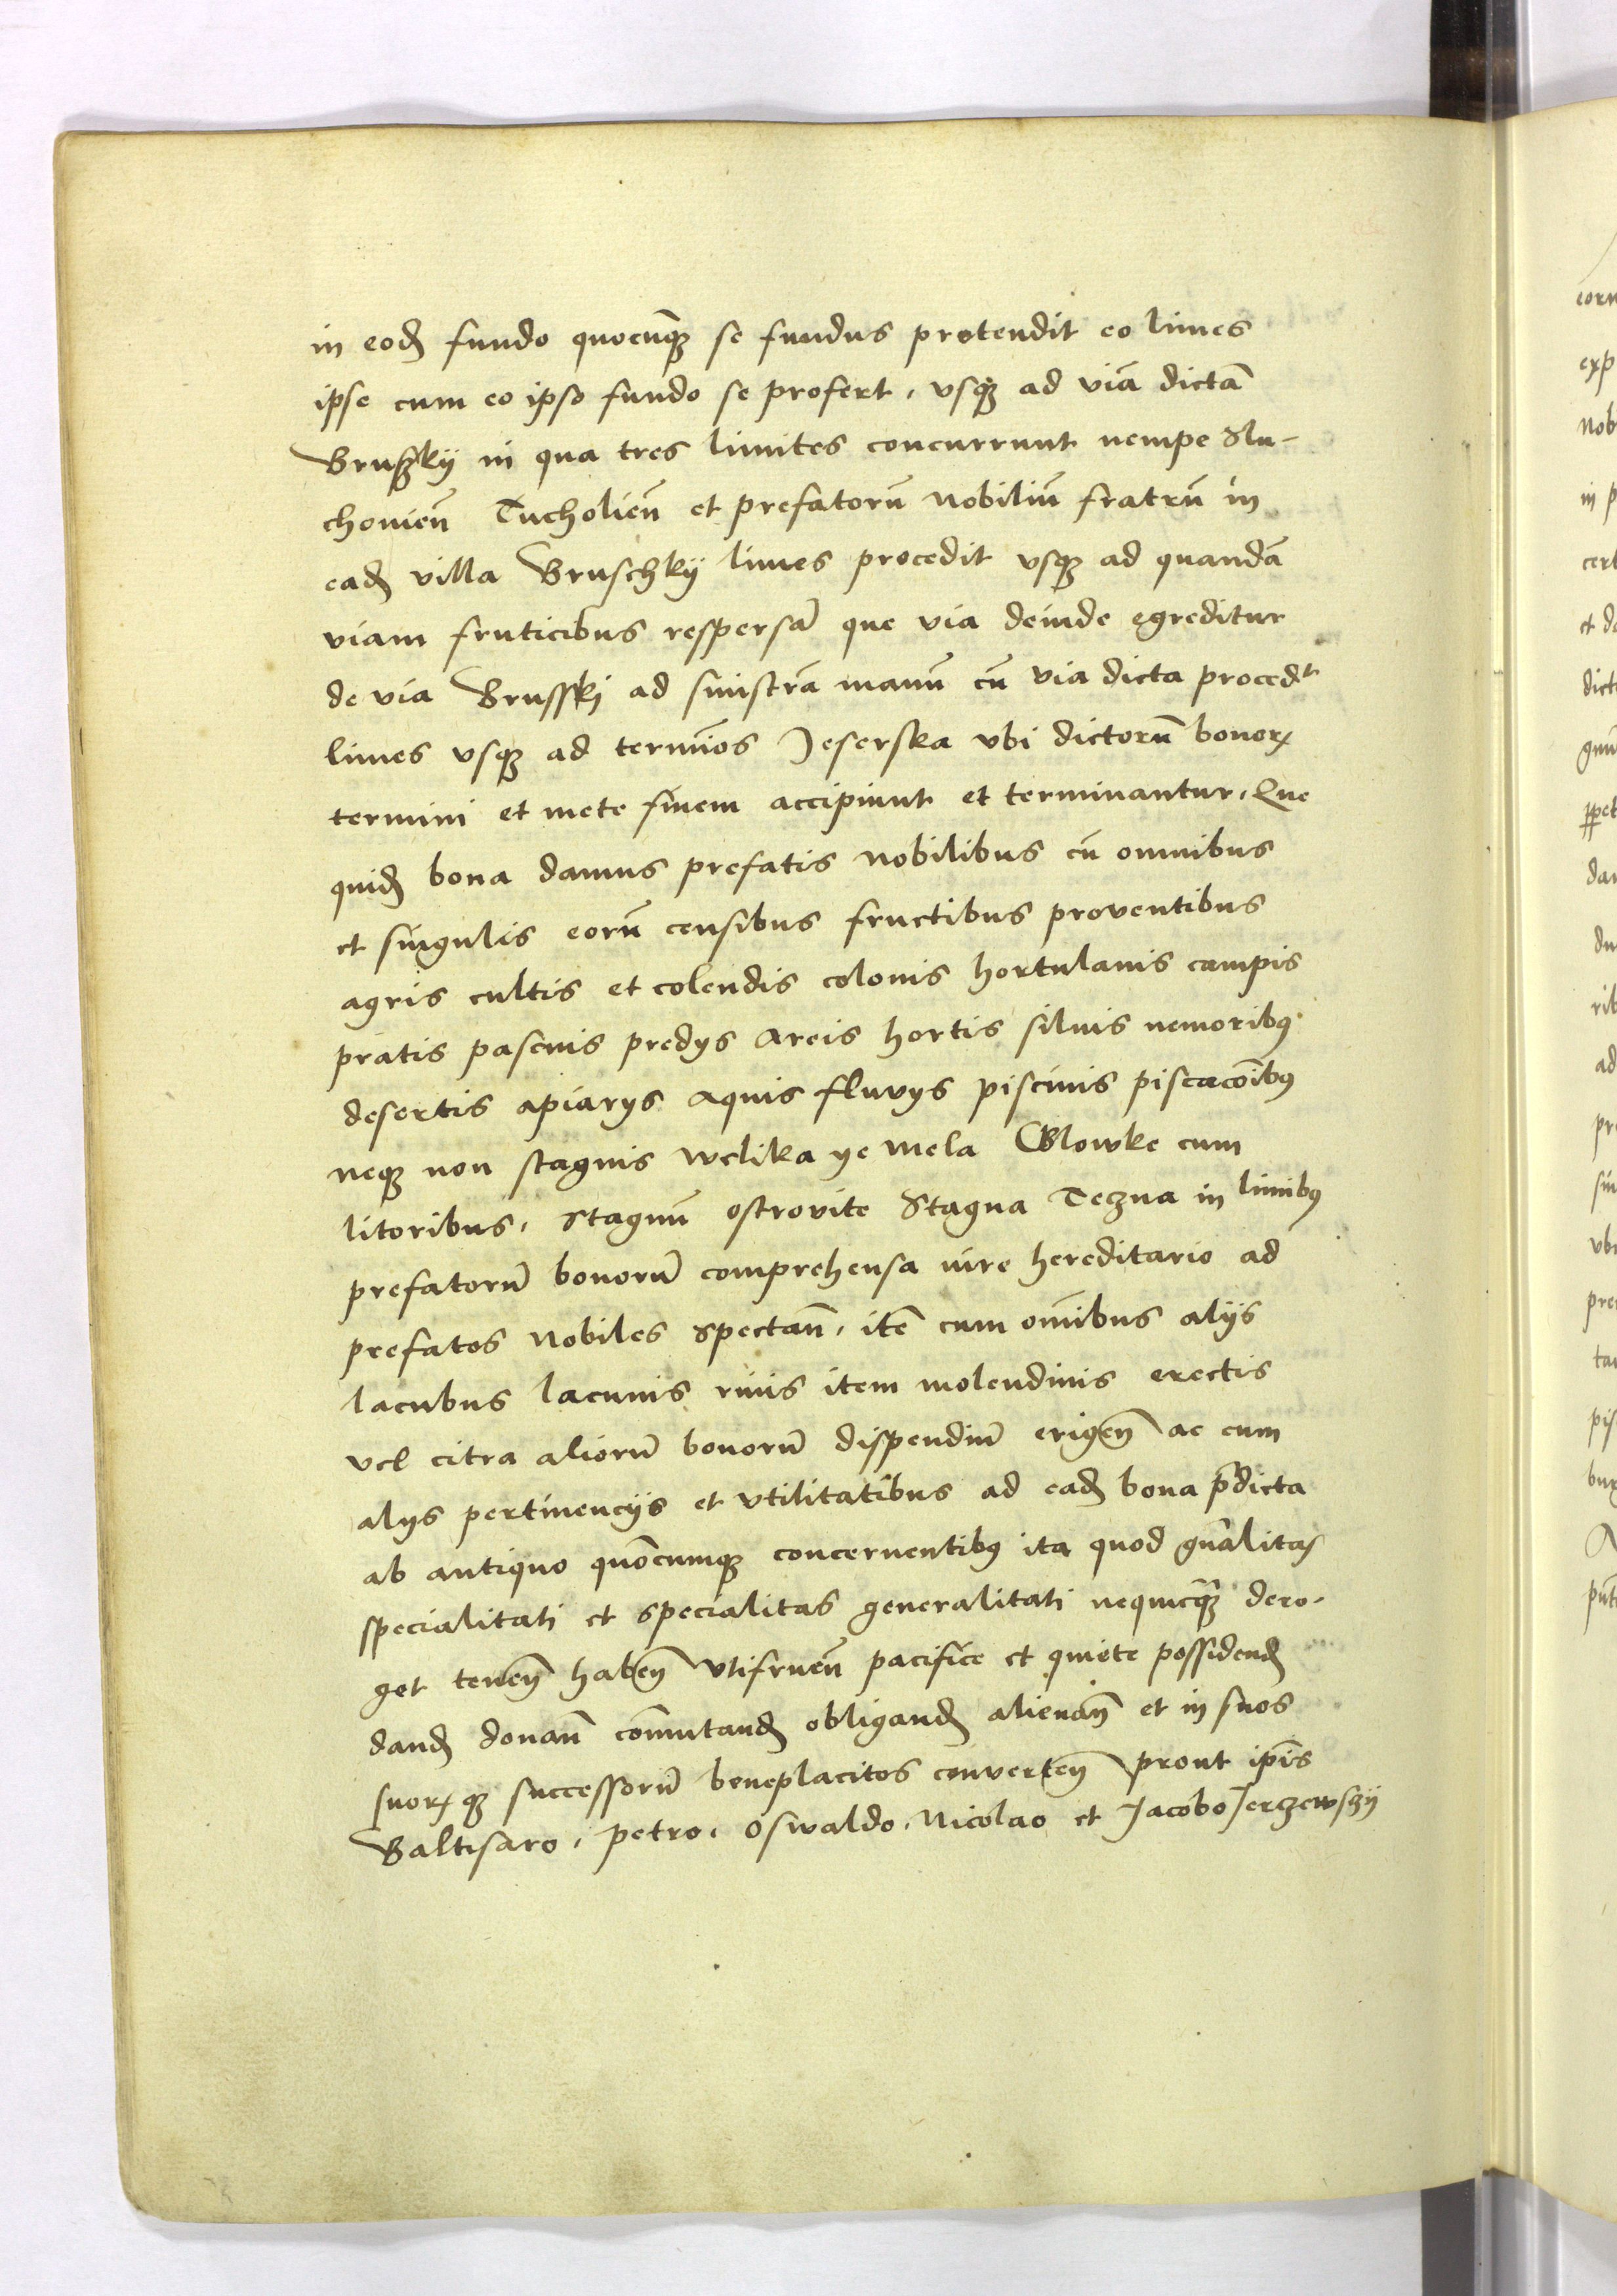 in eod fundo quocūq se fundus protendit eo limes
ipse cum eo ipso fundo se profert, vsq ad viā dictā
Bruszky in qua tres limites concurrunt nempe Slu-
chouien̄ Tucholien̄ et prefatorū nobiliū fratrū in
ead villa Bruschky limes procedit vsq ad quandā
viam fruticibus respersā que via deinde egreditur
de via Brusski ad sinistrā manū cū via dicta procedt
limes vsq ad termīos Jeserska vbi dictorū bonoꝝ
termini et mete finem accipiunt et terminantur, Que
quid bona damus prefatis nobilibus cū omnibus
et singulis eorū censibus fructibus proventibus
agris cultis et colendis colonis hortulanis campis
pratis pascuis predys areis hortis siluis nemoribꝰ
desertis apiarys aquis fluvys piscinis piscacōibꝰ
neq non stagnis welika ye mela Glowke cum
litoribus, Stagnū ostrovite Stagna Teczna in limibꝰ
prefatorū bonorū comprehensa iure hereditario ad
prefatos nobiles spectan̄, itē cum om̄ibus alijs
lacubus lacunis riuis item molendinis erectis
vel citra aliorū bonorū dispendiū erigen̄ ac cum
alys pertinencijs et vtilitatibus ad ead bona p̄dicta
ab antiquo quōcumq concernentibꝰ ita quod gn̄alitas
specialitati et specialitas generalitati nequicq̄ dero-
get tenen̄ haben̄ vtifruen̄ pacifice et quiete possidend
dand donan̄ com̄utand obligand alienan̄ et in suos
suoꝝ q successorū beneplacitos conuerten̄ prout ip̄is
Baltisaro, petro, Oswaldo, Nicolao et Jacobo Jerczewsky
eorū
exp
nob
in p
cert
et d
dict